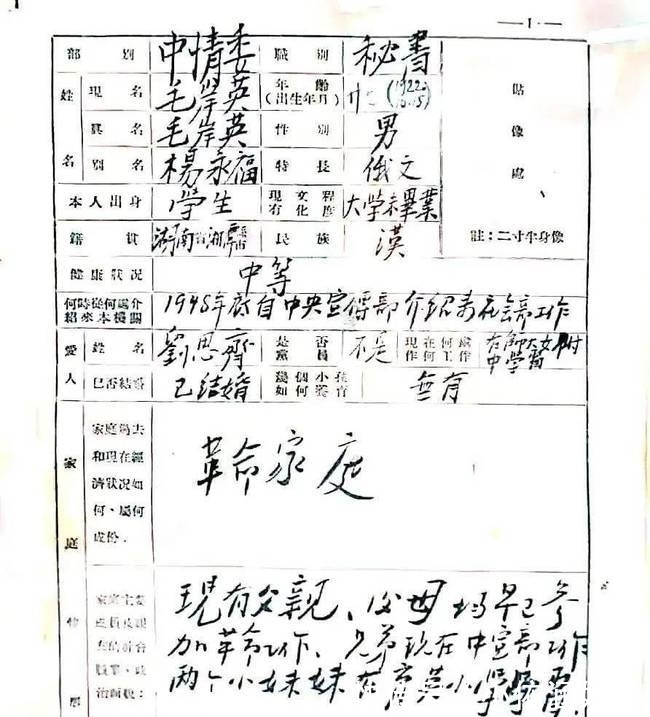 —1—
部別 中情委 職別 秘書
姓名 現名 毛岸英 年齡(出生年月) 廿七(1922.10.15) 貼像處
眞名 毛岸英 性別 男
別名 楊永福 特長 俄文
本人出身 學生 現有文化程度 大学未畢業
籍貫 湖南省湘潭 民族 漢 註:二寸半身像
健康狀況 中等
何時從何處介紹來本機關 1948年底自中央宣傳部介紹来社会部工作
愛人 姓名 劉思齊 是否黨員 不是 現在何處作何工作 在師大女附中學習
已否結婚 已結婚 幾個小孩如何養育 無有
家庭 家庭過去
和現在經
濟狀况如
何、屬何
成份.
革命家庭
家庭主要
現有父親、父母均早已参
加革命工作、兄弟现在中宣部工作
两个小妹妹在育英小学